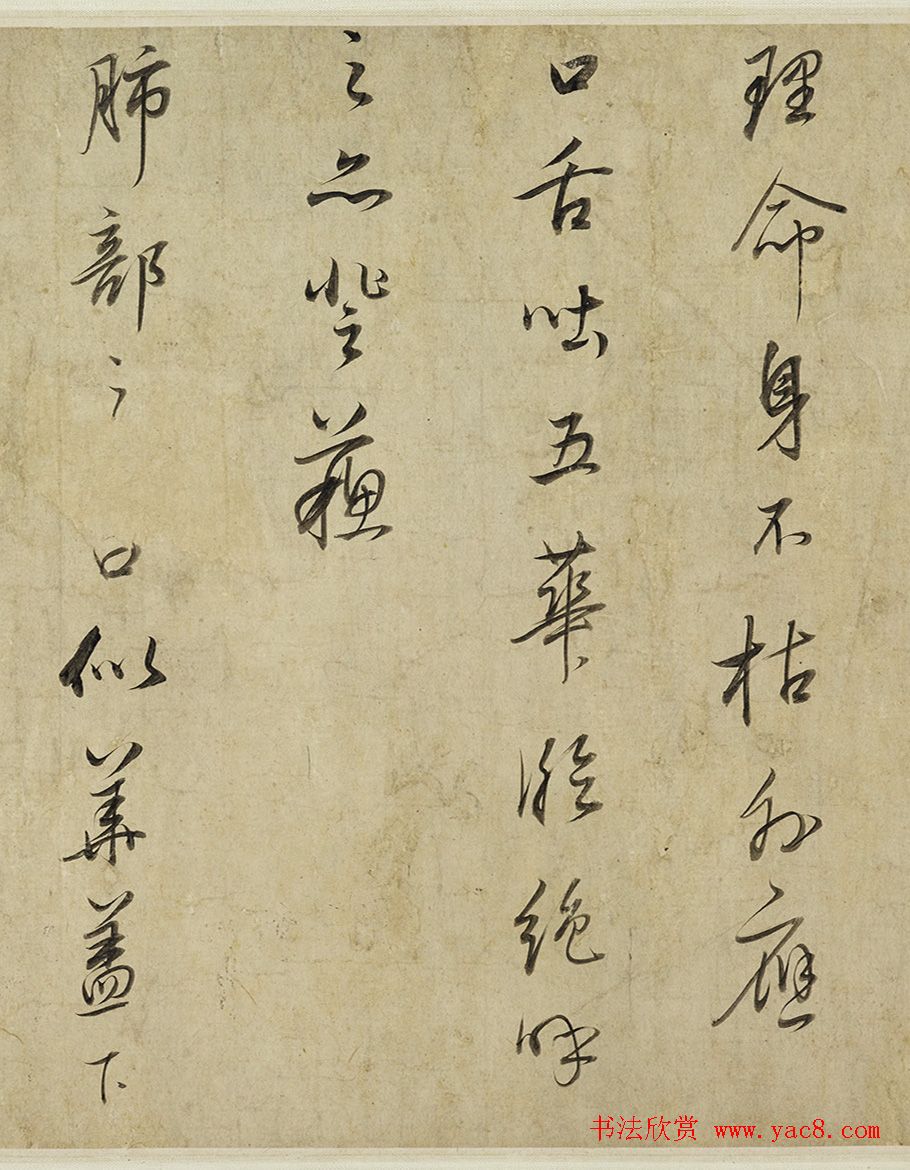 理命身不枯外應
口舌吐五華臨絕呼
之亦登蘇
肺部之口似華蓋下
书法欣赏 www.yac8.com